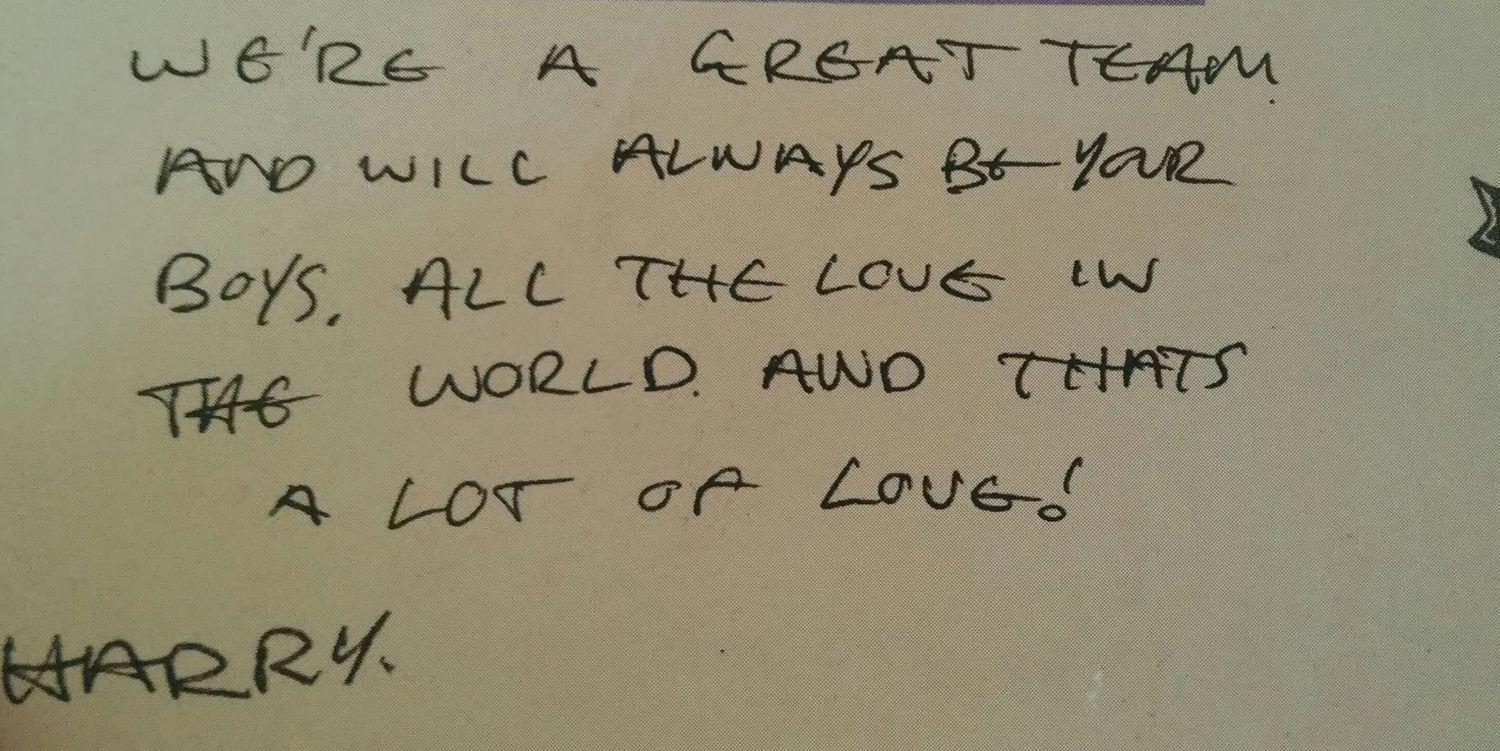 WE'RE A GREAT TEAM.
AND WILL ALWAYS BE YOUR
BOYS. ALL THE LOVE IN
THE WORLD. AND THATS
A LOT OF LOVE!
HARRY.